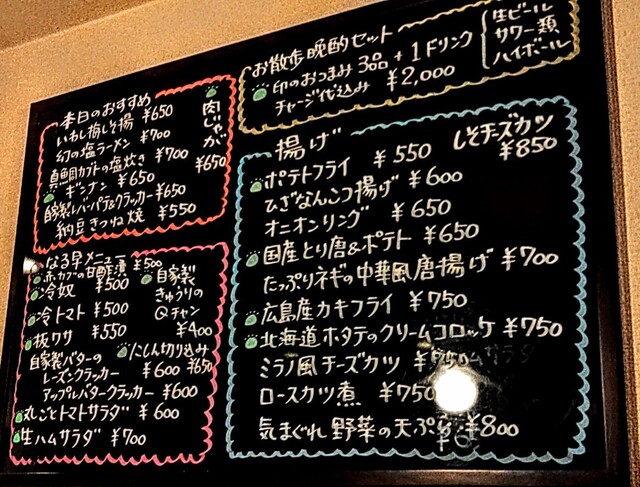 お散歩晩酌セット
印のおつまみ3品+1ドリンク
チャージ代込み ¥2,000
生ビール
サワー類
ハイボール
本日のおすすめ
いわし梅しそ揚 ¥650
幻の塩ラーメン ¥700
真鯛カブトの塩炊き ¥700
ギンナン ¥650
自家製レバーパテ&クラッカー ¥650
納豆きつね焼 ¥550
肉じゃが
¥650
なる早メニュー
赤カブの甘酢漬 ¥500
冷奴 ¥500
冷トマト ¥500
板ワサ ¥550
自家製バターの
レーズンクラッカー ¥600
アップルバタークラッカー ¥600
丸ごとトマトサラダ ¥600
生ハムサラダ ¥700
自家製
きゅうりの
Qチャン
¥400
にしん切り込み
¥650
揚げ
ポテトフライ ¥550
ひざなんこつ揚げ ¥600
オニオンリング ¥650
国産とり唐&ポテト ¥650
たっぷりネギの中華風唐揚げ ¥700
広島産カキフライ ¥750
北海道ホタテのクリームコロッケ ¥750
ミラノ風チーズカツ
ロースカツ煮 ¥750
気まぐれ野菜の天ぷら ¥800
しそチーズカツ
¥850